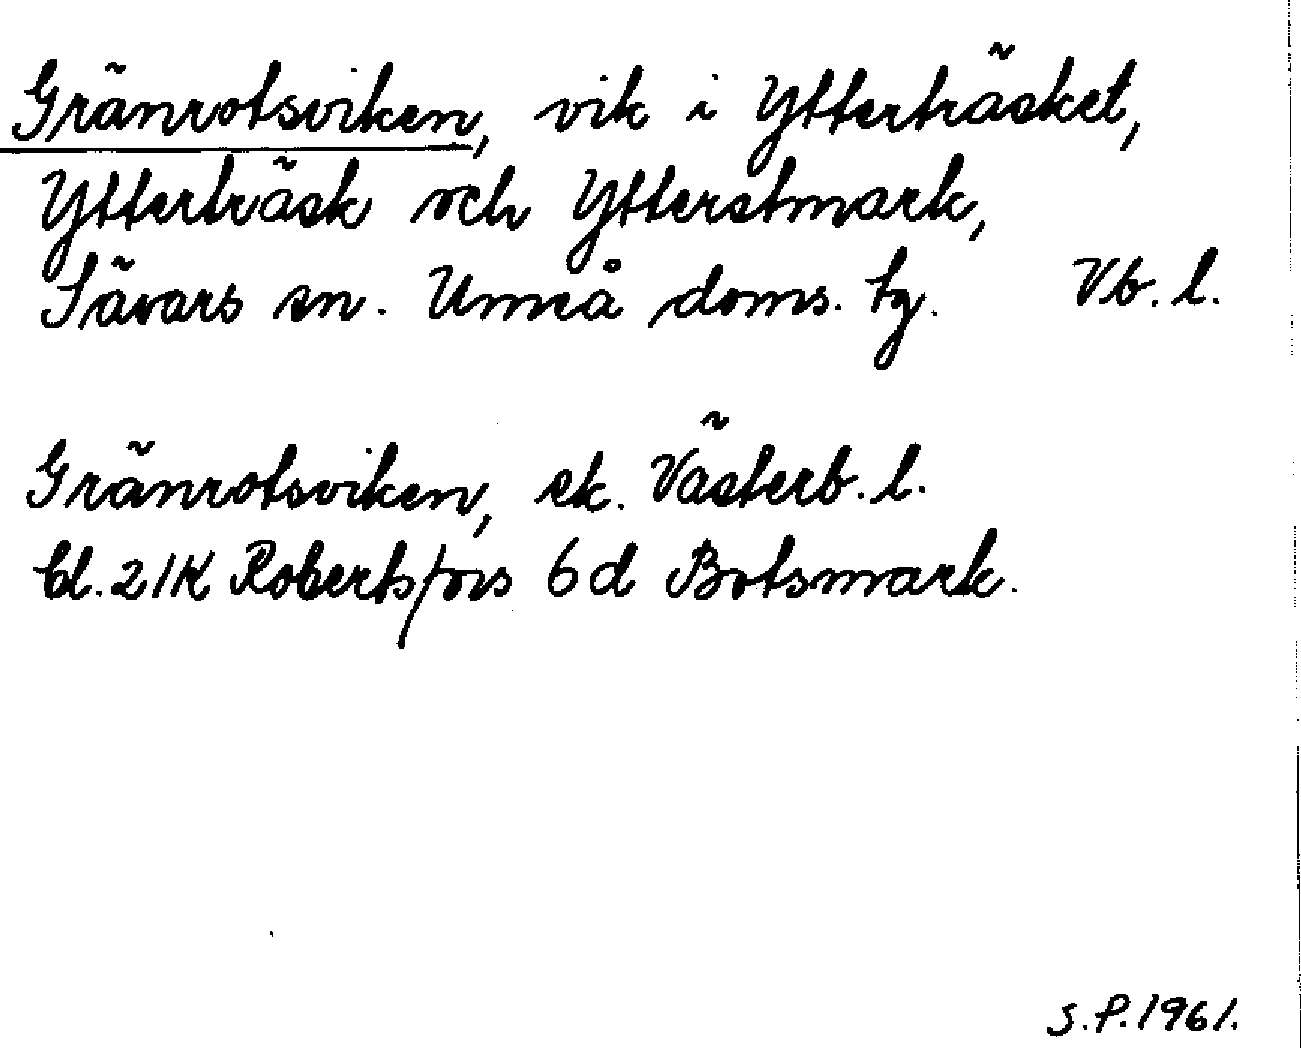 Gränrotsviken, vik i Ytterträsket,
Ytterträsk och Ytterstmark,
Sävars sn. Umeå doms. tg. Vb. l.
Gränrotsviken, ek. Västerb. l.
bl. 21K Robertsfors 6d Botsmark.
S.P. 1961.